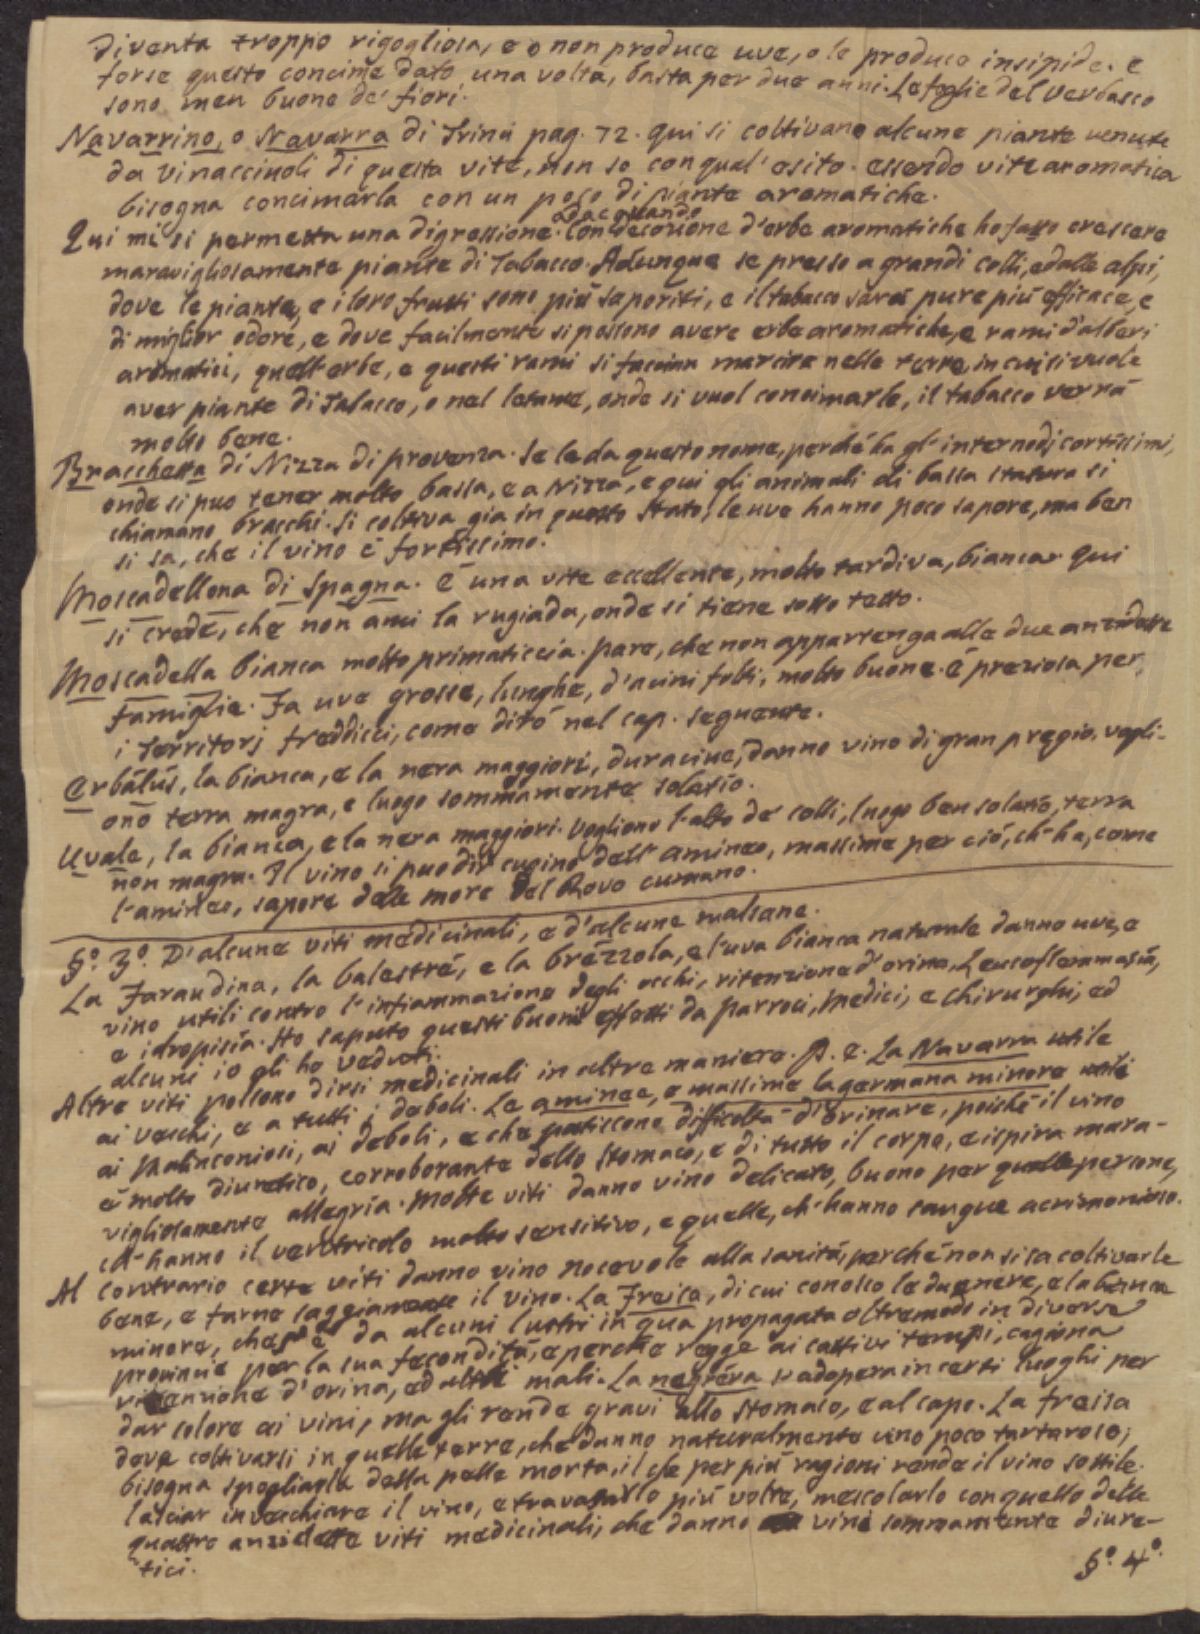 diventa troppo rigogliosa, e o non produce uve, o le produce insipide. e
forse questo concime dato una volta, basta per due anni. Le foglie del verbasco
sono men buone de' fiori.
Navarrino, o Navarra di Trinù pag. 72. qui si coltivano alcune piante venute
da vinaccinoli di questa vite, non so con qual' esito. essendo vite aromatica
bisogna concimarla con un poco di piante aromatiche.
Qui mi si permetta una digressione. adacquando
con decozione d'erbe aromatiche ho fatto crescere
maravigliosamente piante di Tabacco. Adunque se presso a grandi colli, e dalle alpi,
dove le piante, e i loro frutti sono più saporiti, e il tabacco sarà pure più efficace, e
di miglior odore, e dove facilmente si possono avere erbe aromatiche, e rami d'alberi
aromatici, quest'erbe, e questi rami si faccian marcire nelle terre, in cui si vuole
aver piante di Tabacco, o nel letame, onde si vuol concimarle, il tabacco verrà
molto bene.
Bracchetta di Nizza di provenza. Se le da questo nome, perché ha gl' internodj cortissimi,
onde si può tener molto bassa, e a Nizza, e qui gli animali di bassa statura si
chiamano bracchi. Si coltiva già in questo stato, le uve hanno poco sapore, ma ben
si sa, che il vino è fortissimo.
Moscadellona di Spagna. È una vite eccellente, molto tardiva, bianca. qui
si crede, che non ami la rugiada, onde si tiene sotto tetto.
Moscadella bianca molto primaticcia. pare, che non appartenga alle due anzidette
famiglie. Fa uve grosse, lunghe, d'acini folti, molto buone. È preziosa per
i territorj freddicci, come dirò nel cap. seguente.
Erbalùs, la bianca, e la nera maggiori, duracine, danno vino di gran pregio. vogli-
ono terra magra, e luogo sommamente solatío.
Uvale, la bianca, e la nera maggiori. Vogliono l'alto de' colli, luogo ben solatío, terra
non magra. Il vino si può dir cugino dell' amineo, massime per ciò, ch' ha, come
l'amineo, sapore delle more del Rovo cumano.
§.º 3.º D'alcune viti medicinali, e d'alcune malsane.
La Faraudina, la balestrà, e la brèzzola, e l'uva bianca naturale danno uve, e
vino utili contro l'infiammazione degli occhi, ritenzione d'orina, Leucoflemmasía,
e idropisía. Ho saputo questi buoni effetti da parroci, medici, e chirurghi, ed
alcuni io gli ho veduti.
Altre viti possono dirsi medicinali in altre maniere. P. e. La Navarra utile
ai vecchi, e a tutti i deboli. Le aminee, e massime la germana minore utili
ai Malinconiosi, ai deboli, e che patiscono difficoltà d'orinare, poiché il vino
è molto diuretico, corroborante dello stomaco, e di tutto il corpo, e ispira mara-
vigliosamente allegría. Molte viti danno vino delicato, buono per quelle persone,
ch' hanno il ventricolo molto sensitivo, e quelle, ch' hanno sangue acrimonioso.
Al contrario certe viti danno vino nocevole alla sanità, perché non si sa coltivarle
bene, e farne saggiamente il vino. La Freisa, di cui conosco le due nere, e la bianca
minore, che s'è da alcuni lustri in qua propagata oltremodo in diverse
provincie per la sua fecondità, e perché regge ai cattivi tempi, cagiona
ritenzione d'orina, ed altri mali. La negréra s'adopera in certi luoghi per
dar colore ai vini, ma gli rende gravi allo stomaco, e al capo. La freisa
deve coltivarsi in quelle terre, che danno naturalmente vino poco tartaroso;
bisogna spogliarla della pelle morta, il che per più ragioni rende il vino sottile.
lasciar invecchiare il vino, e travasarlo più volte, mescolarlo con quello delle
quattro anzidette viti medicinali, che danno vini sommamente diure-
tici.
§.º 4.º